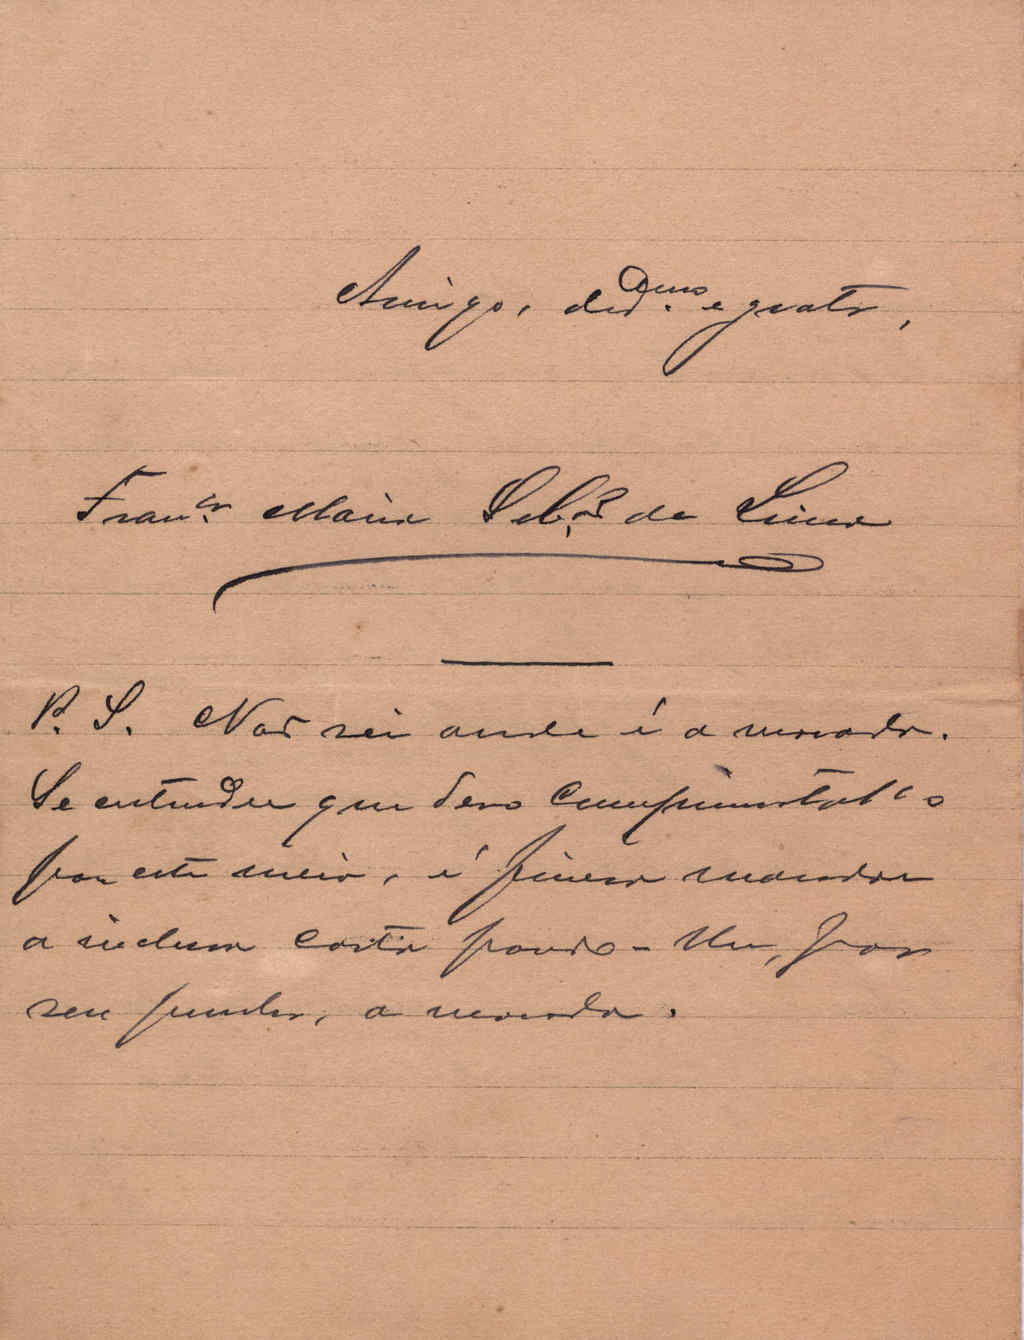 Amigo, ded.mo e grato,
Fran.co Maria de Lima
P. S. Não sei onde é a morada.
Se entender que devo
por este meio, é fineza mandar
a inclusa carta pondo-lhe, por
seu punho, a morada.